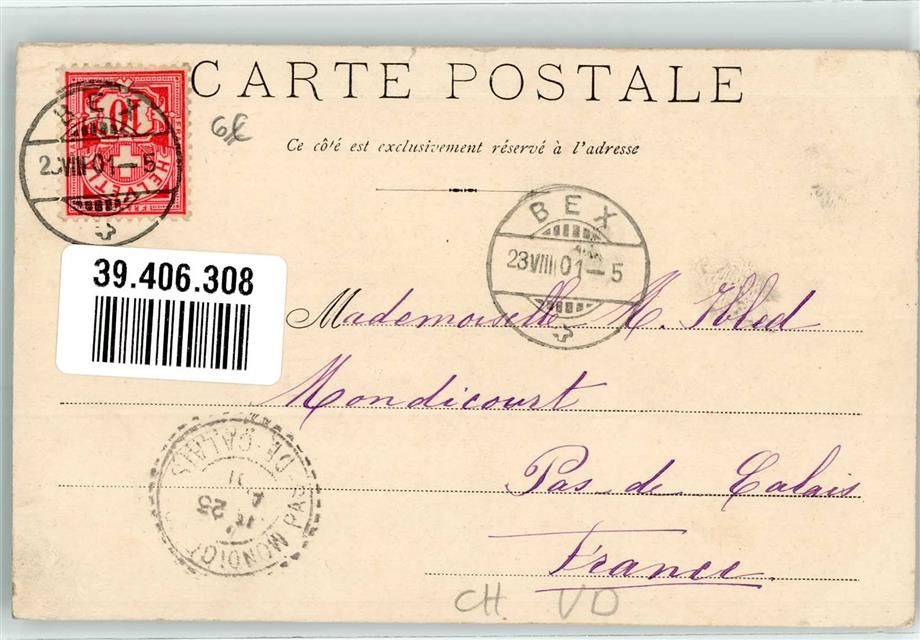 CARTE POSTALE
Ce côté est exclusivement réservé à l'adresse
10
HELVETIA
FRANCO
BEX
23 VIII 01 – 5
BEX
23 VIII 01 – 5
39.406.308
Mademoiselle A.
Mondicourt
Pas de Calais
France
PAS DE CALAIS
25
CH VD